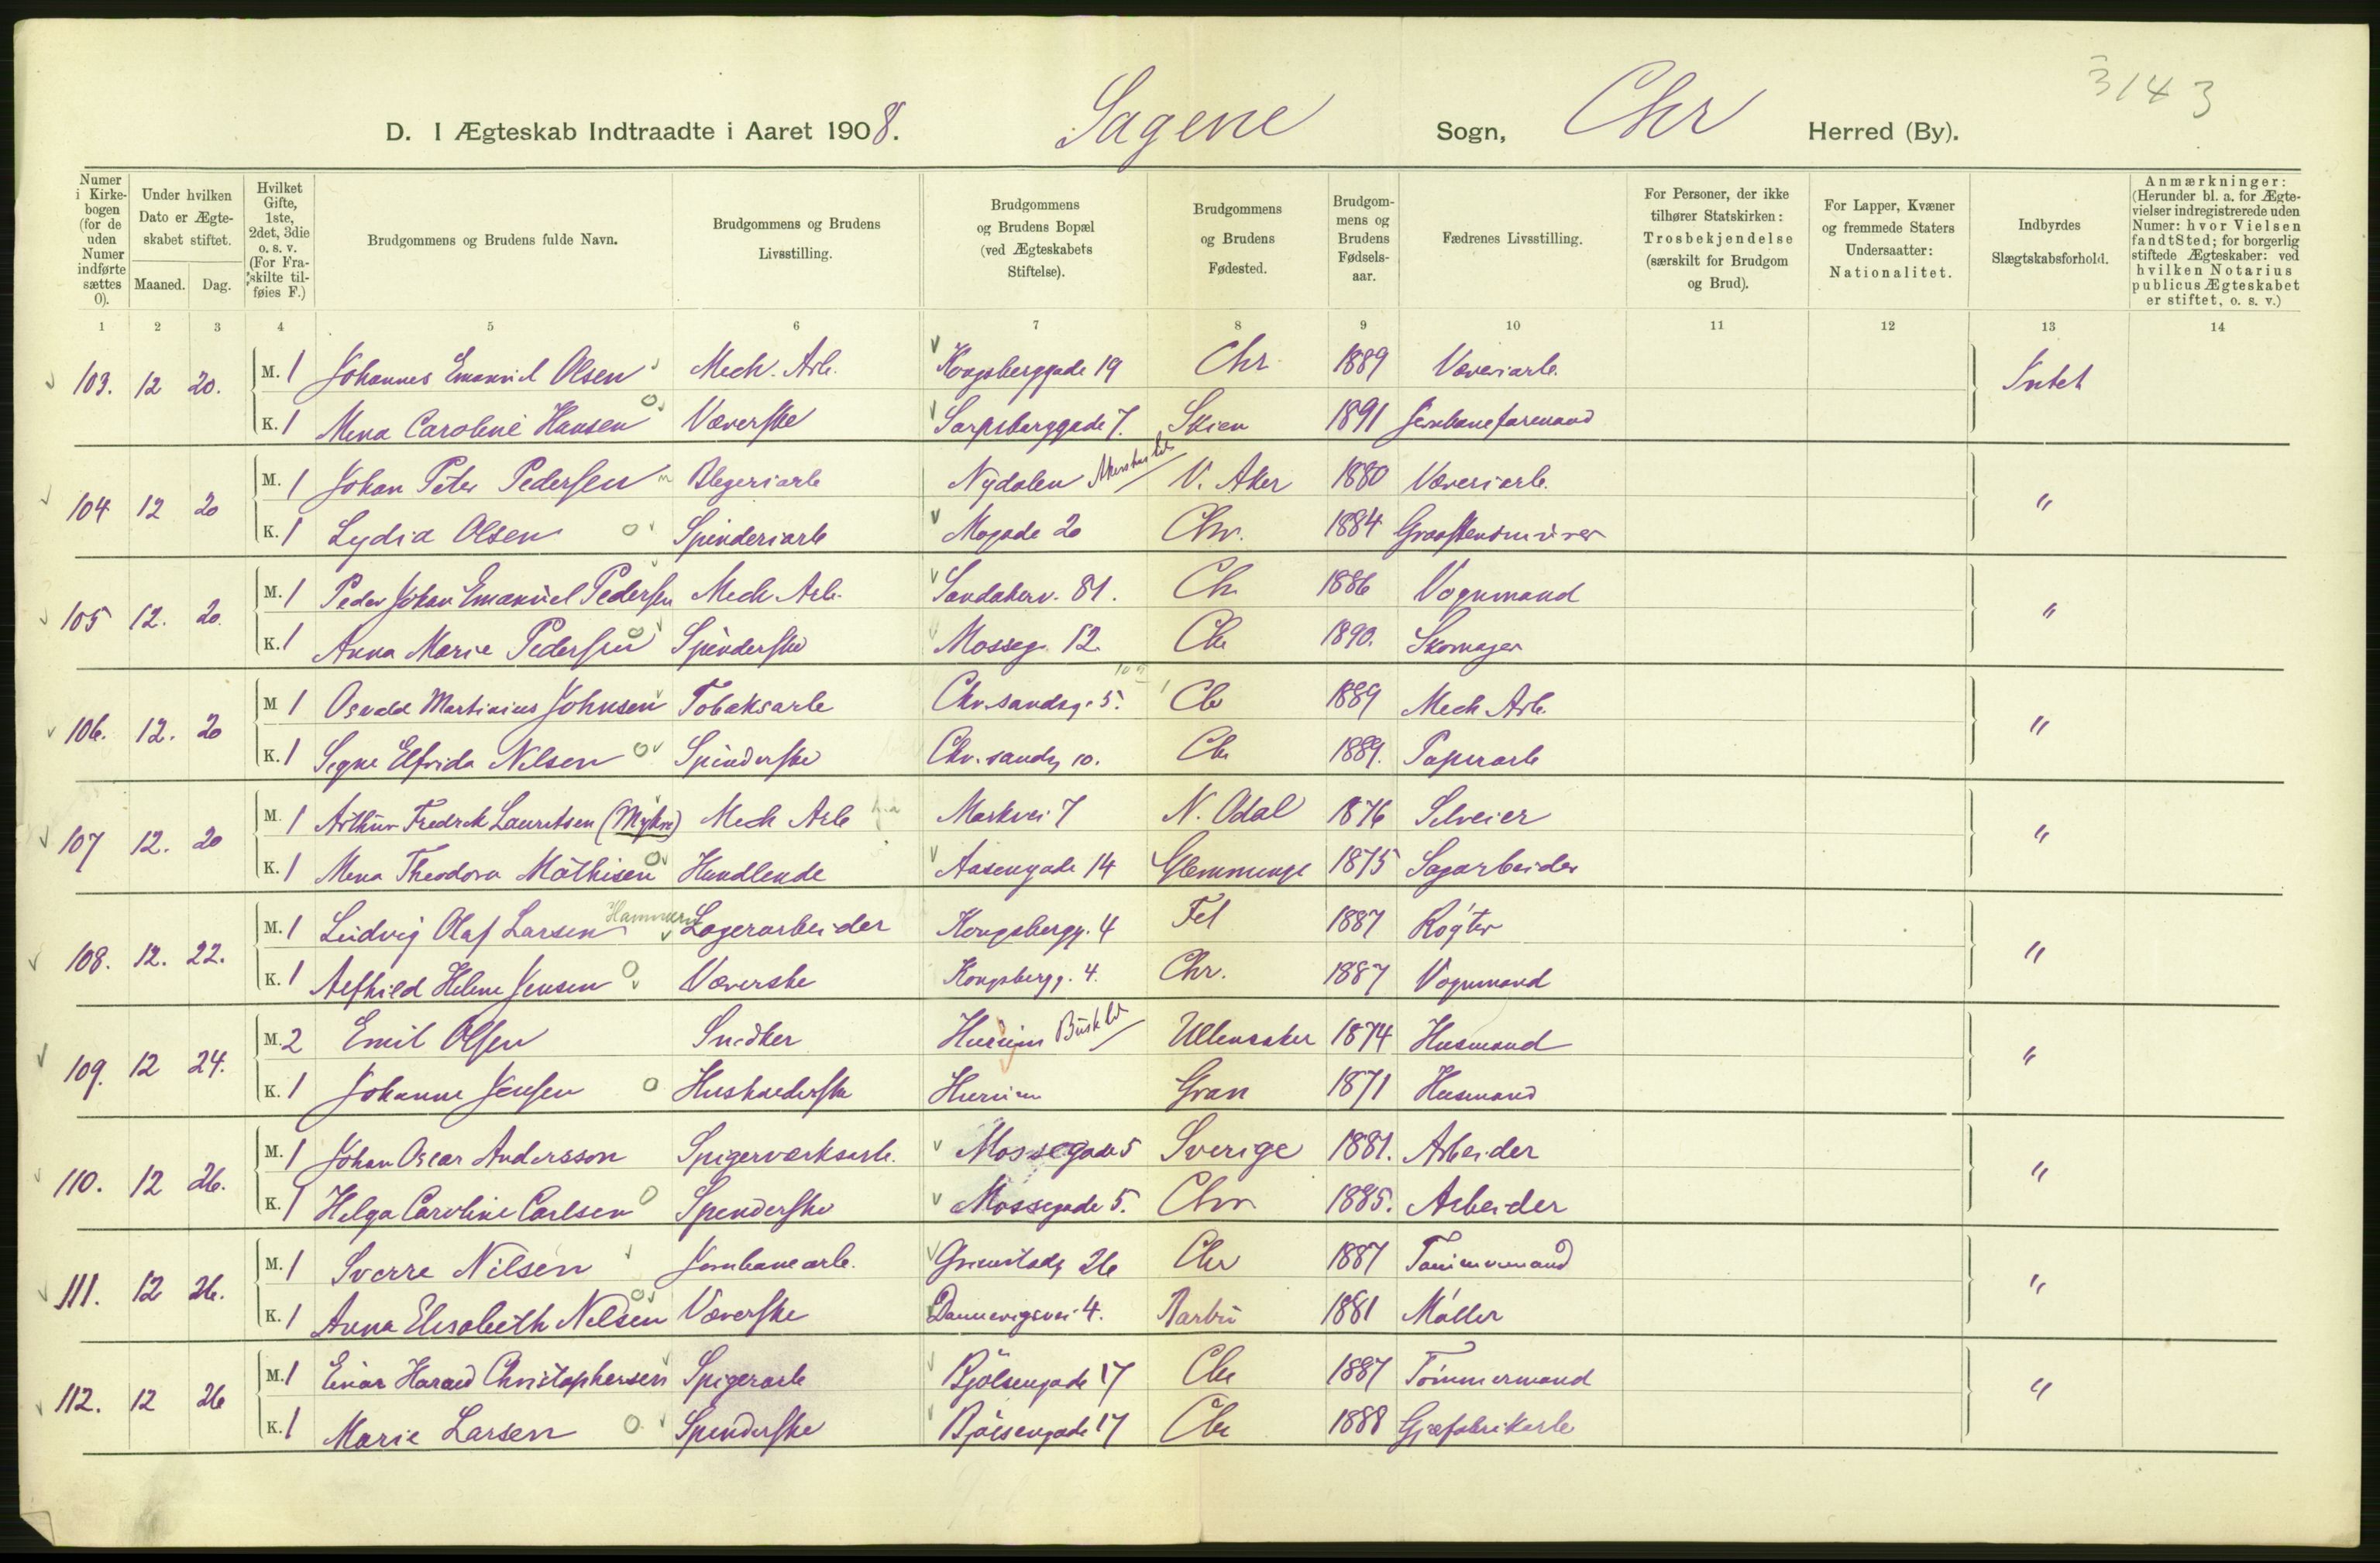 3143
D. I Ægteskab Indtraadte i Aaret 1908. Sagene Sogn, Chr Herred (By).
Numer i Kirkebogen (for de uden Numer indførte sættes 0). Under hvilken Dato er Ægteskabet stiftet. Maaned. Dag. Hvilket Gifte, 1ste, 2det, 3die o. s. v. (For Fraskilte tilføies F.) Brudgommens og Brudens fulde Navn. Brudgommens og Brudens Livsstilling. Brudgommens og Brudens Bopæl (ved Ægteskabets Stiftelse). Brudgommens og Brudens Fødested. Brudgommens og Brudens Fødselsaar. Fædrenes Livsstilling. For Personer, der ikke tilhører Statskirken: Trosbekjendelse (særskilt for Brudgom og Brud). For Lapper, Kvæner og fremmede Staters Undersaatter: Nationalitet. Indbyrdes Slægtskabsforhold. Anmærkninger: (Herunder bl. a. for Ægtevielser indregistrerede uden Numer: hvor Vielsen fandt Sted; for borgerlig stiftede Ægteskaber: ved hvilken Notarius publicus Ægteskabet er stiftet, o. s. v.)
1 2 3 4 5 6 7 8 9 10 11 12 13 14
103. 12 20. M. 1 Johannes Emanuel Olsen Mech. Arb. Kongsberggade 19 Chr 1889 Væveriarb. Intet
K. 1 Mena Caroline Hansen Væverske Sarpsborggade 7. Skien 1891 Jernbaneformand
104 12 20 M. 1 Johan Peter Pedersen Blegeriarb Nydalen V. Aker 1880 Væveriarb. "
K. 1 Lydia Olsen Spinderiarb Mogade 20 Chr. 1884 Graastensmurer
105 12. 20. M. 1 Peder Johan Emanuel Pedersen Mech Arb. Sandakerv. 81. Ch 1886 Vognmand "
K. 1 Anna Marie Pedersen Spinderske Mosseg. 12. Chr 1890. Skomager
106. 12. 20 M 1 Osvald Martinius Johnsen Tobaksarb Chr.sandsg. 5. Chr 1889 Mech Arb. "
K. 1 Signe Elfrida Nilsen Spinderske Chr.sandsg 10. Chr 1889. Papirarb
107 12. 20 M. 1 Arthur Fredrik Lauritsen (Myhre) Mech Arb Markvei 7 N. Odal 1876 Selveier "
K. 1 Mena Theodora Mathisen Handlende Aasengade 14 Glemminge 1875 Sagarbeider
108. 12. 22. M. 1 Ludvig Olaf Larsen Lagerarbeider Kongsbergg. 4 Fet 1887 Røgter "
K. 1 Alfhild Helene Jensen Væverske Kongsbergg. 4. Chr. 1887 Vognmand
109. 12 24. M. 2 Emil Olsen Snedker Hurum Buskd Ullensaker 1874 Husmand "
K. 1 Johanne Jensen Husholderske Hurum Gran 1871 Husmand
110. 12 26. M. 1 Johan Oscar Andersson Spigerværksarb. Mossegade 5 Sverige 1881. Arbeider "
K. 1 Helga Caroline Carlsen Spinderske Mossegade 5. Chr 1885. Arbeider
111. 12 26. M. 1 Sverre Nilsen Jernbanearb. Grimstadg 26 Chr 1887 Tømmermand "
K. 1 Anna Elisabeth Nilsen Væverske Dannevigsvei 4. Barbu 1881 Møller
112. 12 26 M. 1 Einar Harald Christophersen Spigerarb Bjølsengade 17 Chr 1887 Tømmermand "
K. 1 Marie Larsen Spinderske Bjølsengade 17 Chr 1888 Gjæfabrikarb